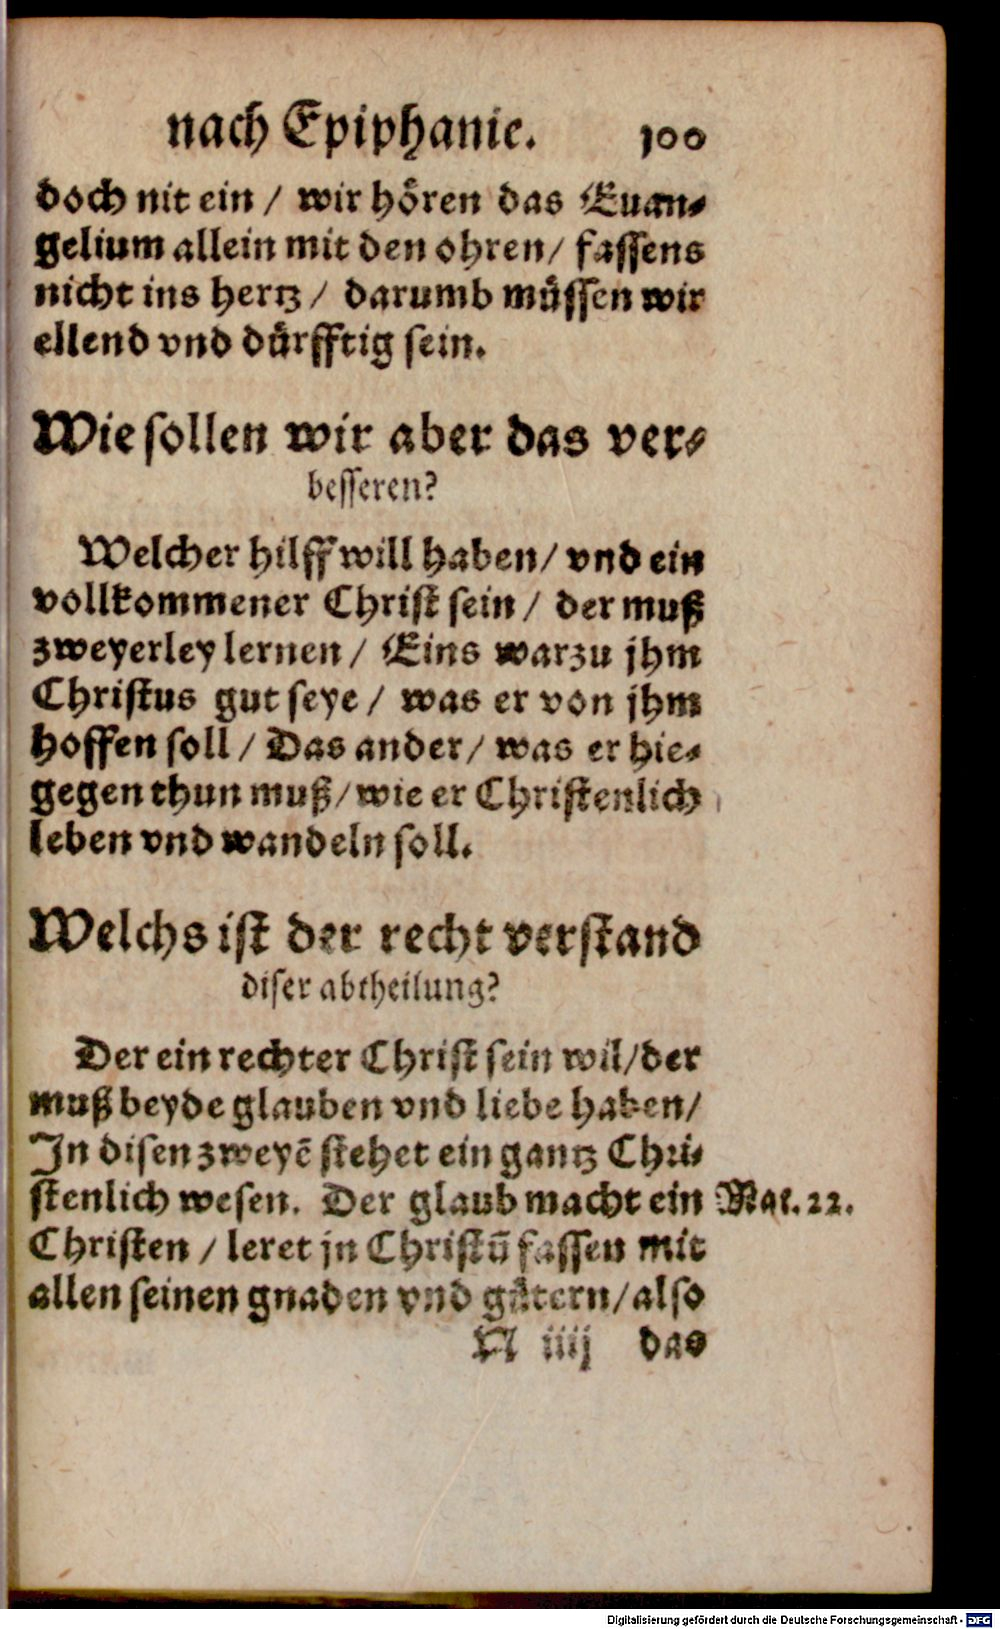 nach Epiphanie. 100
doch nit ein / wir hoͤren das Euan⸗
gelium allein mit den ohren / fassens
nicht ins hertz / darumb muͤssen wir
ellend vnd duͤrfftig sein.
Wie sollen wir aber das ver⸗
besseren?
Welcher hilff will haben / vnd ein
vollkommener Christ sein / der muß
zweyerley lernen / Eins warzu jhm
Christus gut seye / was er von jhm
hoffen soll / Das ander / was er hie⸗
gegen thun muß / wie er Christenlich
leben vnd wandeln soll.
Welchs ist der recht verstand
diser abtheilung?
Der ein rechter Christ sein wil / der
muß beyde glauben vnd liebe haben /
In disen zweyē stehet ein gantz Chri⸗
stenlich wesen. Der glaub macht ein Mat. 22.
Christen / leret jn Christū fassen mit
allen seinen gnaden vnd guͤtern / also
N iiij das
Digitalisierung gefördert durch die Deutsche Forschungsgemeinschaft - DFG